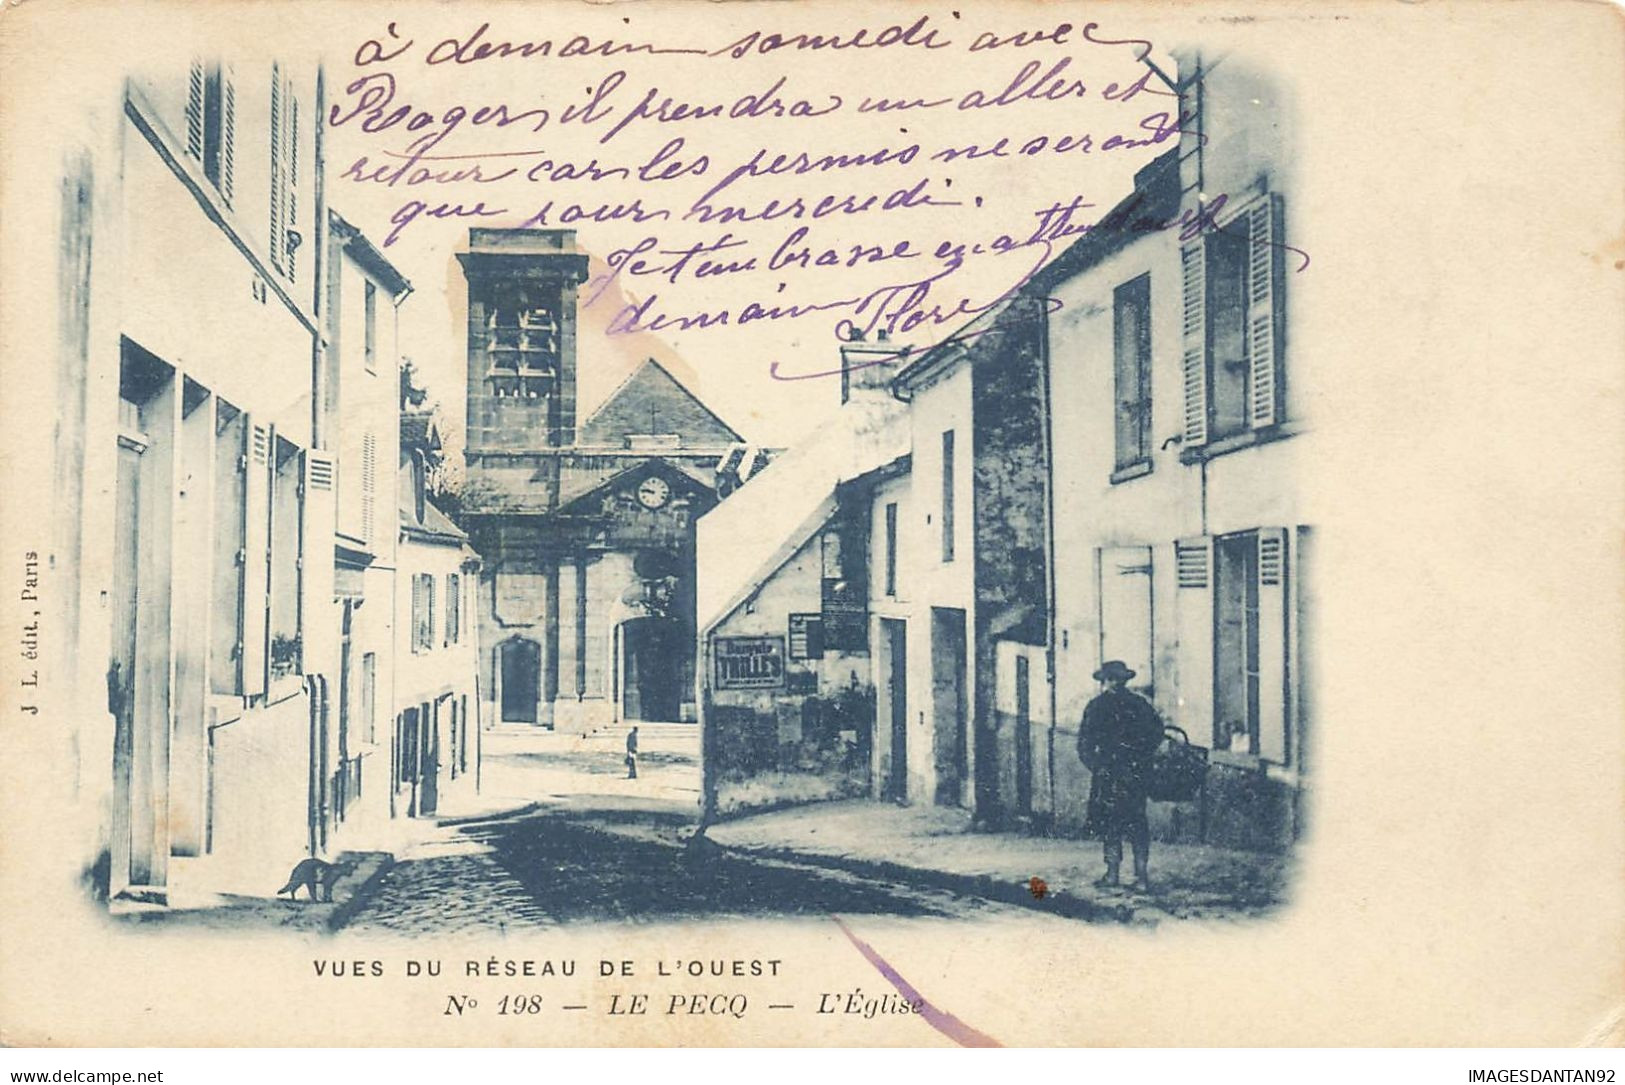 à demain samedi avec
Roger, il prendra un aller et
retour car les permis ne seront
que pour mercredi.
Je t'embrasse en attendant
demain Flore
THILLES
J L. édit., Paris
VUES DU RÉSEAU DE L'OUEST
Nº 198 — LE PECQ — L'Église
delcampe.net
IMAGESDANTAN92